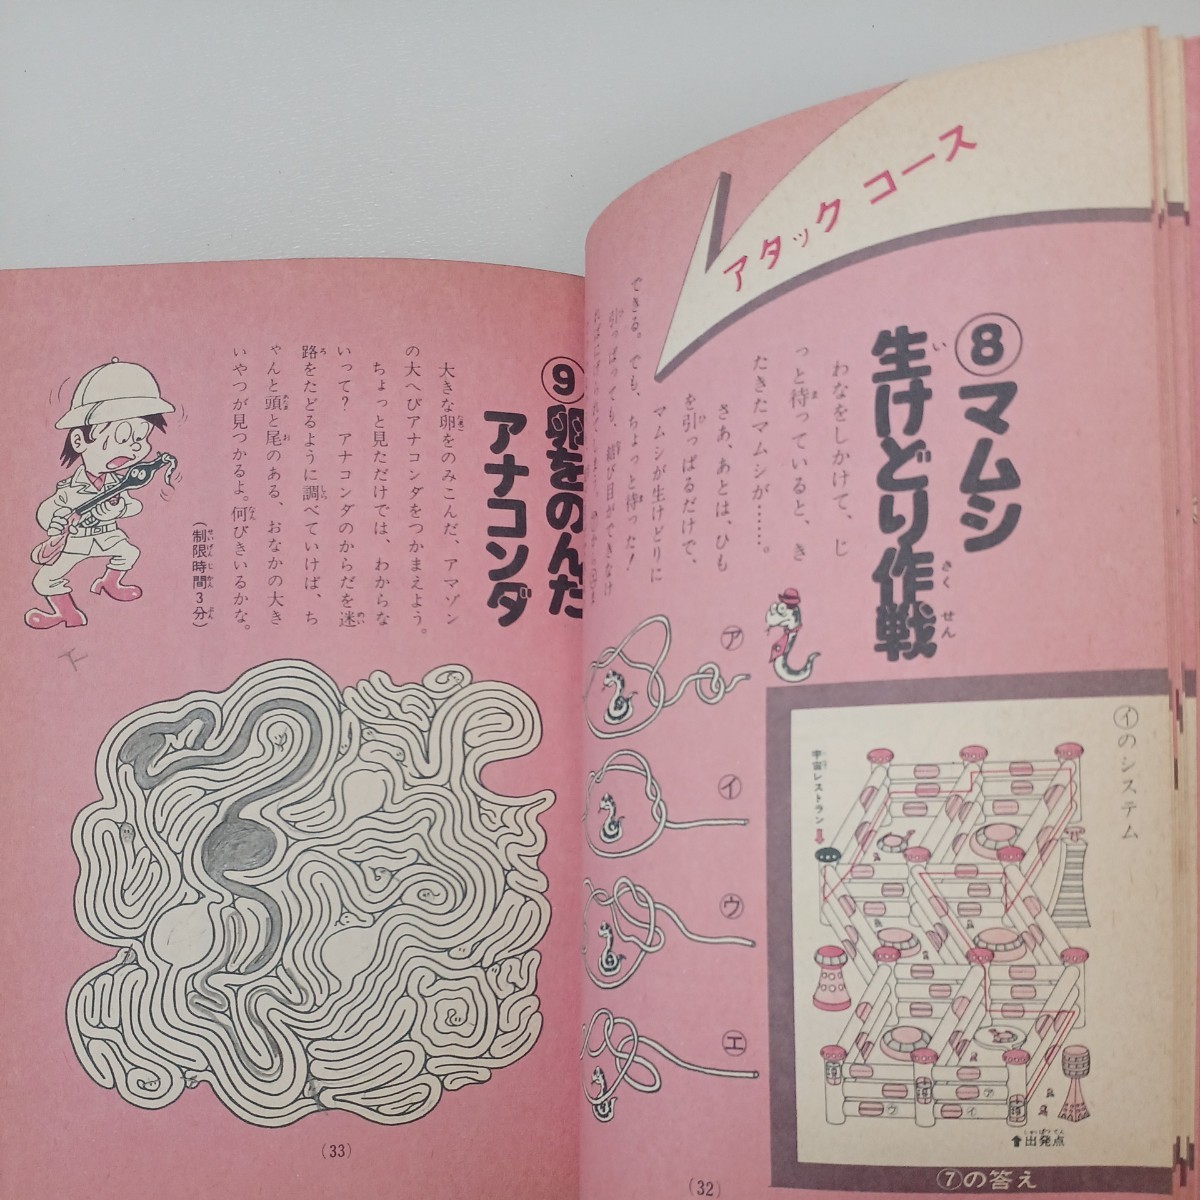 アタック コース
⑧マムシ
生けどり作戦
わなをしかけて、じ
っと待っていると、き
たきたマムシが……。
さあ、あとは、ひも
を引っぱるだけで、
マムシが生けどりに
できる。でも、ちょっと待った！
引っぱっても、結び目ができなけ
ればにげられてしまう。
㋐
㋑
㋒
㋓
㋑のシステム
宇宙レストラン
ア
ウ
イ
出発点
しゅっぱつてん
⑦の答え
(32)
⑨卵をのんだ
アナコンダ
大きな卵をのみこんだ、アマゾン
の大へびアナコンダをつかまえよう。
ちょっと見ただけでは、わからな
いって？ アナコンダのからだを迷
路をたどるように調べていけば、ち
ゃんと頭と尾のある、おなかの大き
いやつが見つかるよ。何びきいるかな。
(制限時間3分)
(33)